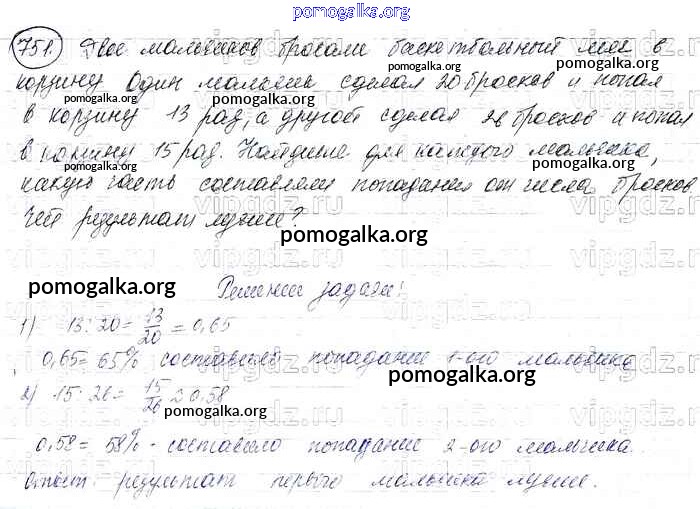 pomogalka.org
751. Двое мальчиков бросали баскетбольный мяч в
pomogalka.org
корзину. Один мальчик сделал 20 бросков и попал
pomogalka.org pomogalka.org
в корзину 13 раз, а другой сделал 26 бросков и попал
в корзину 15 раз. Найдите для каждого мальчика,
pomogalka.org pomogalka.org
какую часть составляли попадания от числа бросков.
Чей результат лучше?
pomogalka.org
pomogalka.org
Решение задачи!
1) 13:20= 13/20 = 0,65
0,65= 65% составило попадание 1-ого мальчика
pomogalka.org
2) 15:26= 15/26 ≈ 0,58
pomogalka.org
0,58= 58% - составило попадание 2-ого мальчика.
Ответ: результат первого мальчика лучше.